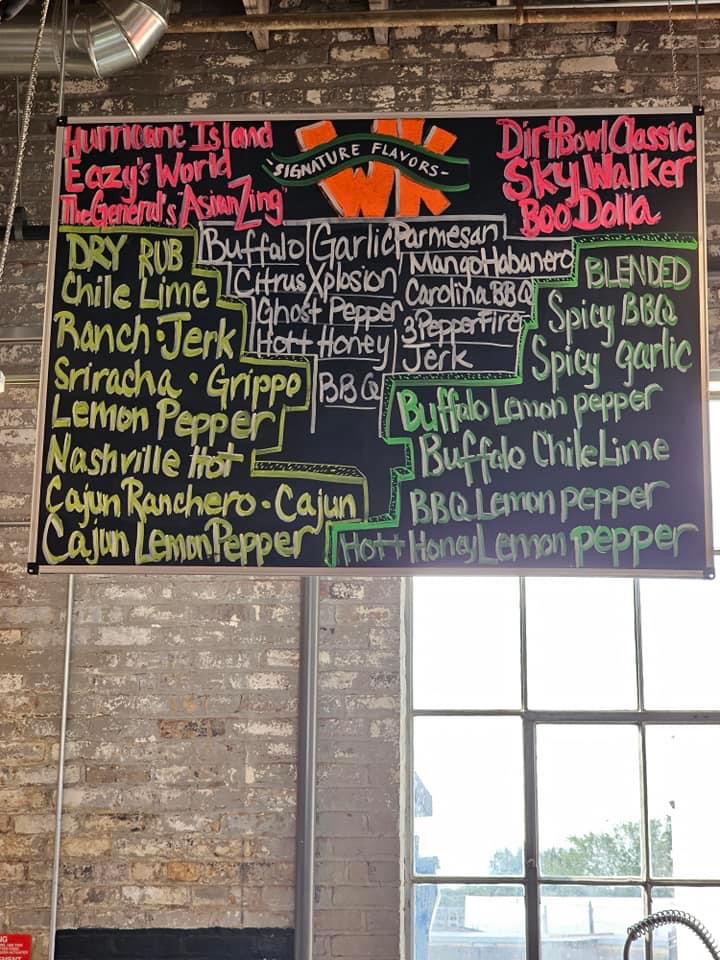 Hurricane Island
Eazy's World
The General's "Asian Zing"
WK
-SIGNATURE FLAVORS-
DirtBowl Classic
SkyWalker
Boo Dolla
DRY RUB
Chile Lime
Ranch · Jerk
Sriracha · Grippo
Lemon Pepper
Nashville Hot
Cajun Ranchero · Cajun
Cajun Lemon Pepper
Buffalo
Citrus Xplosion
Ghost Pepper
Hott Honey
BBQ
Garlic Parmesan
Mango Habanero
Carolina BBQ
3 Pepper Fire
Jerk
BLENDED
Spicy BBQ
Spicy garlic
Buffalo Lemon pepper
Buffalo Chile Lime
BBQ Lemon pepper
Hott Honey Lemon pepper